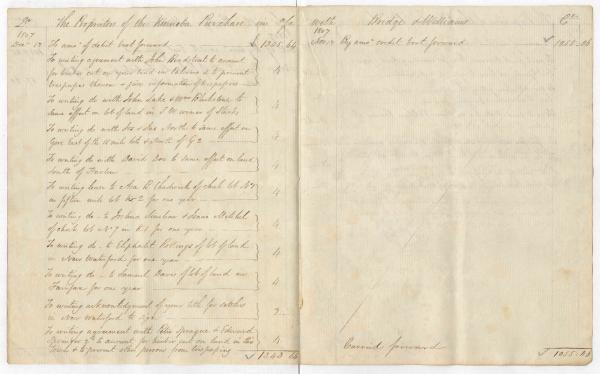 Dr The Proprietors of the Kennebec Purchase in a/c with Bridge & Williams Cr
1807
Decr 17 To amot of debit brot forward $ 1305.64
To writing agreement with John Bradstreet to account
for timber cut on your land in Palermo & to prevent
trespasses thereon & give information of trespassers 4
To writing do with John Lake & Wm
same effect on lot of land in S W corner of 4
To writing do with Jos & North to same effect on
Gore East of the 15 mile lots & North of G 2 4
To writing do with David Doe to same effect on land
south of Harlem 4
To writing lease to Asa R. Chadwick of lot No 7
in fifteen mile lot No 2 for one year 4
To writing do to Joshua & Isaac Mitchel
of lot No 7 in K 1 for one year 4
To writing do to Eliphalet Rollings of lot of land
in New Waterford for one year 4
To writing do to Samuel Davis of lot of land in
Fairfax for one year 4
To writing acknowledgment of your title for
in New Waterford to sign 2
To writing agreement with Peleg Sprague & Edward
to account for timber cut on land in this
Town & to prevent other persons from trespassing 4
$ 1343 64
1807
Nov 17 By amot credit brot forward $ 1055.04
Carried forward $ 1055.04